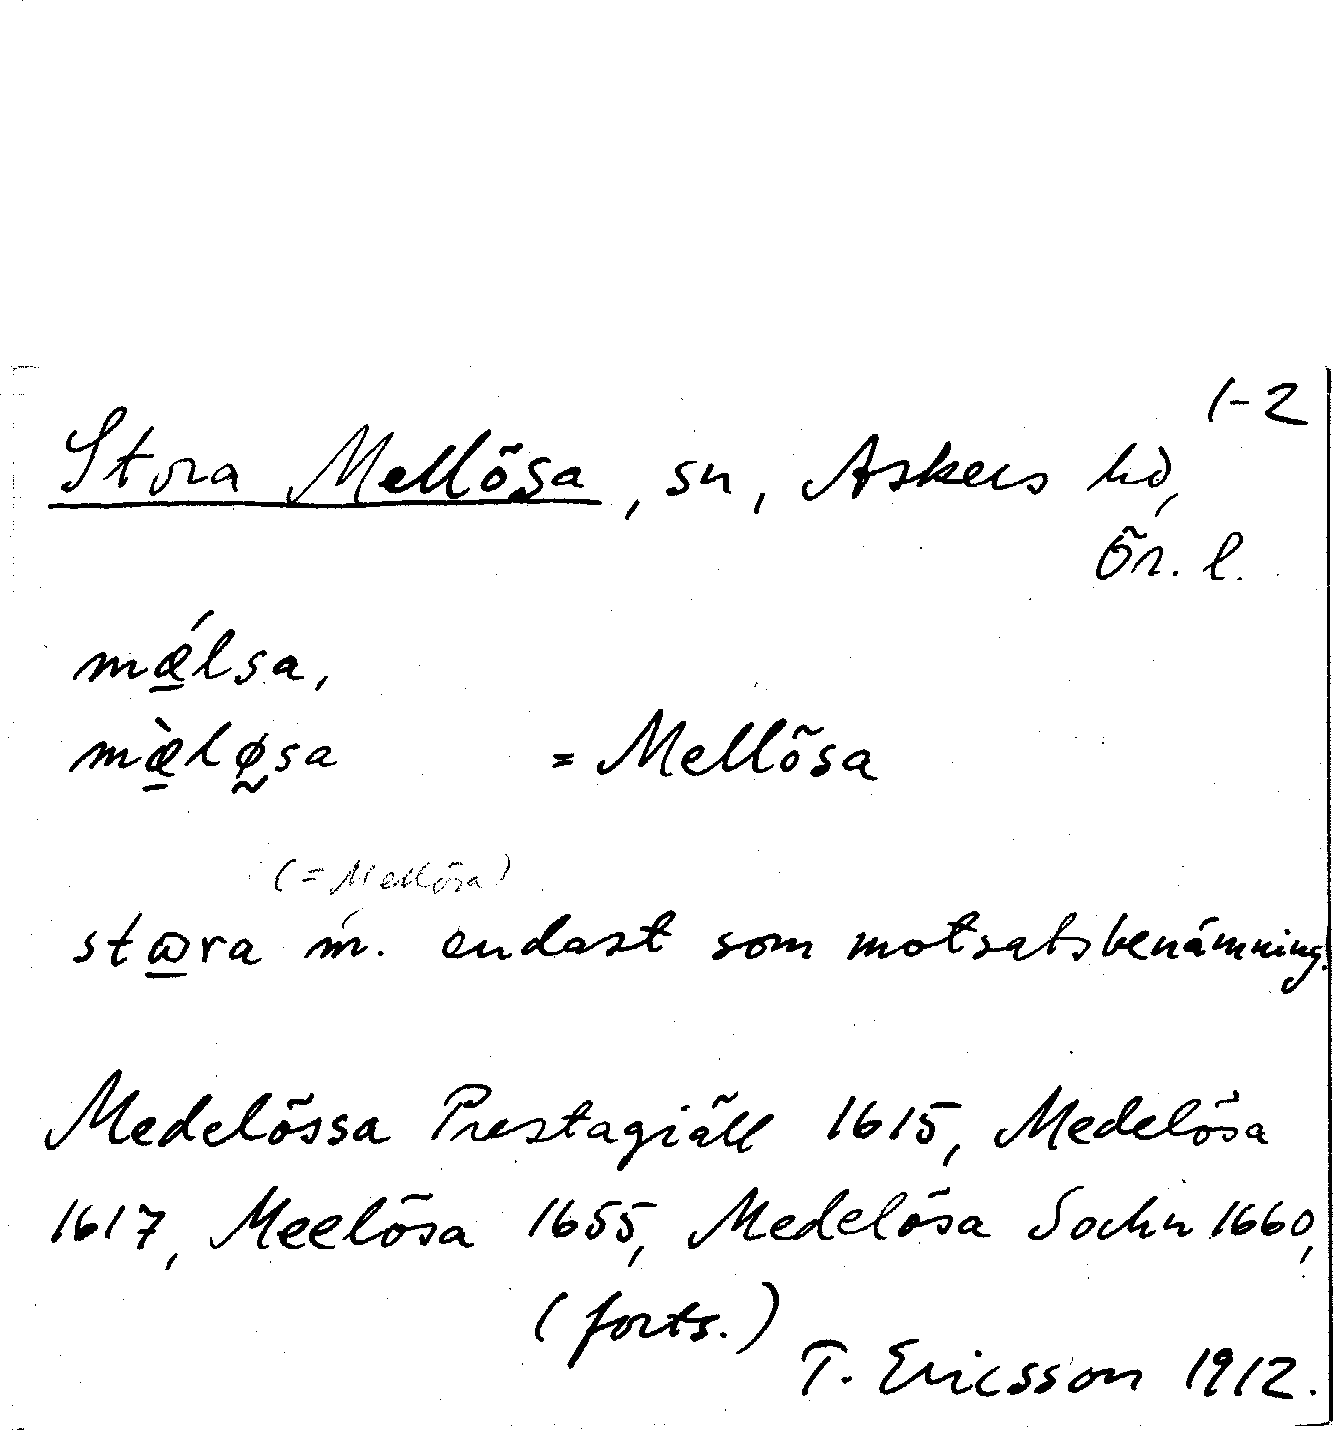 1-2
Stora Mellösa, sn, Askers hd,
Ör. l.
mǽlsa,
mæ̀løsa = Mellösa
(= Mellösa)
stɷra m. endast som motsatsbenämning.
Medelössa Prestagiäll 1615, Medelösa
1617, Meelösa 1655, Medelösa Sochn 1660,
(forts.)
T. Ericsson 1912.